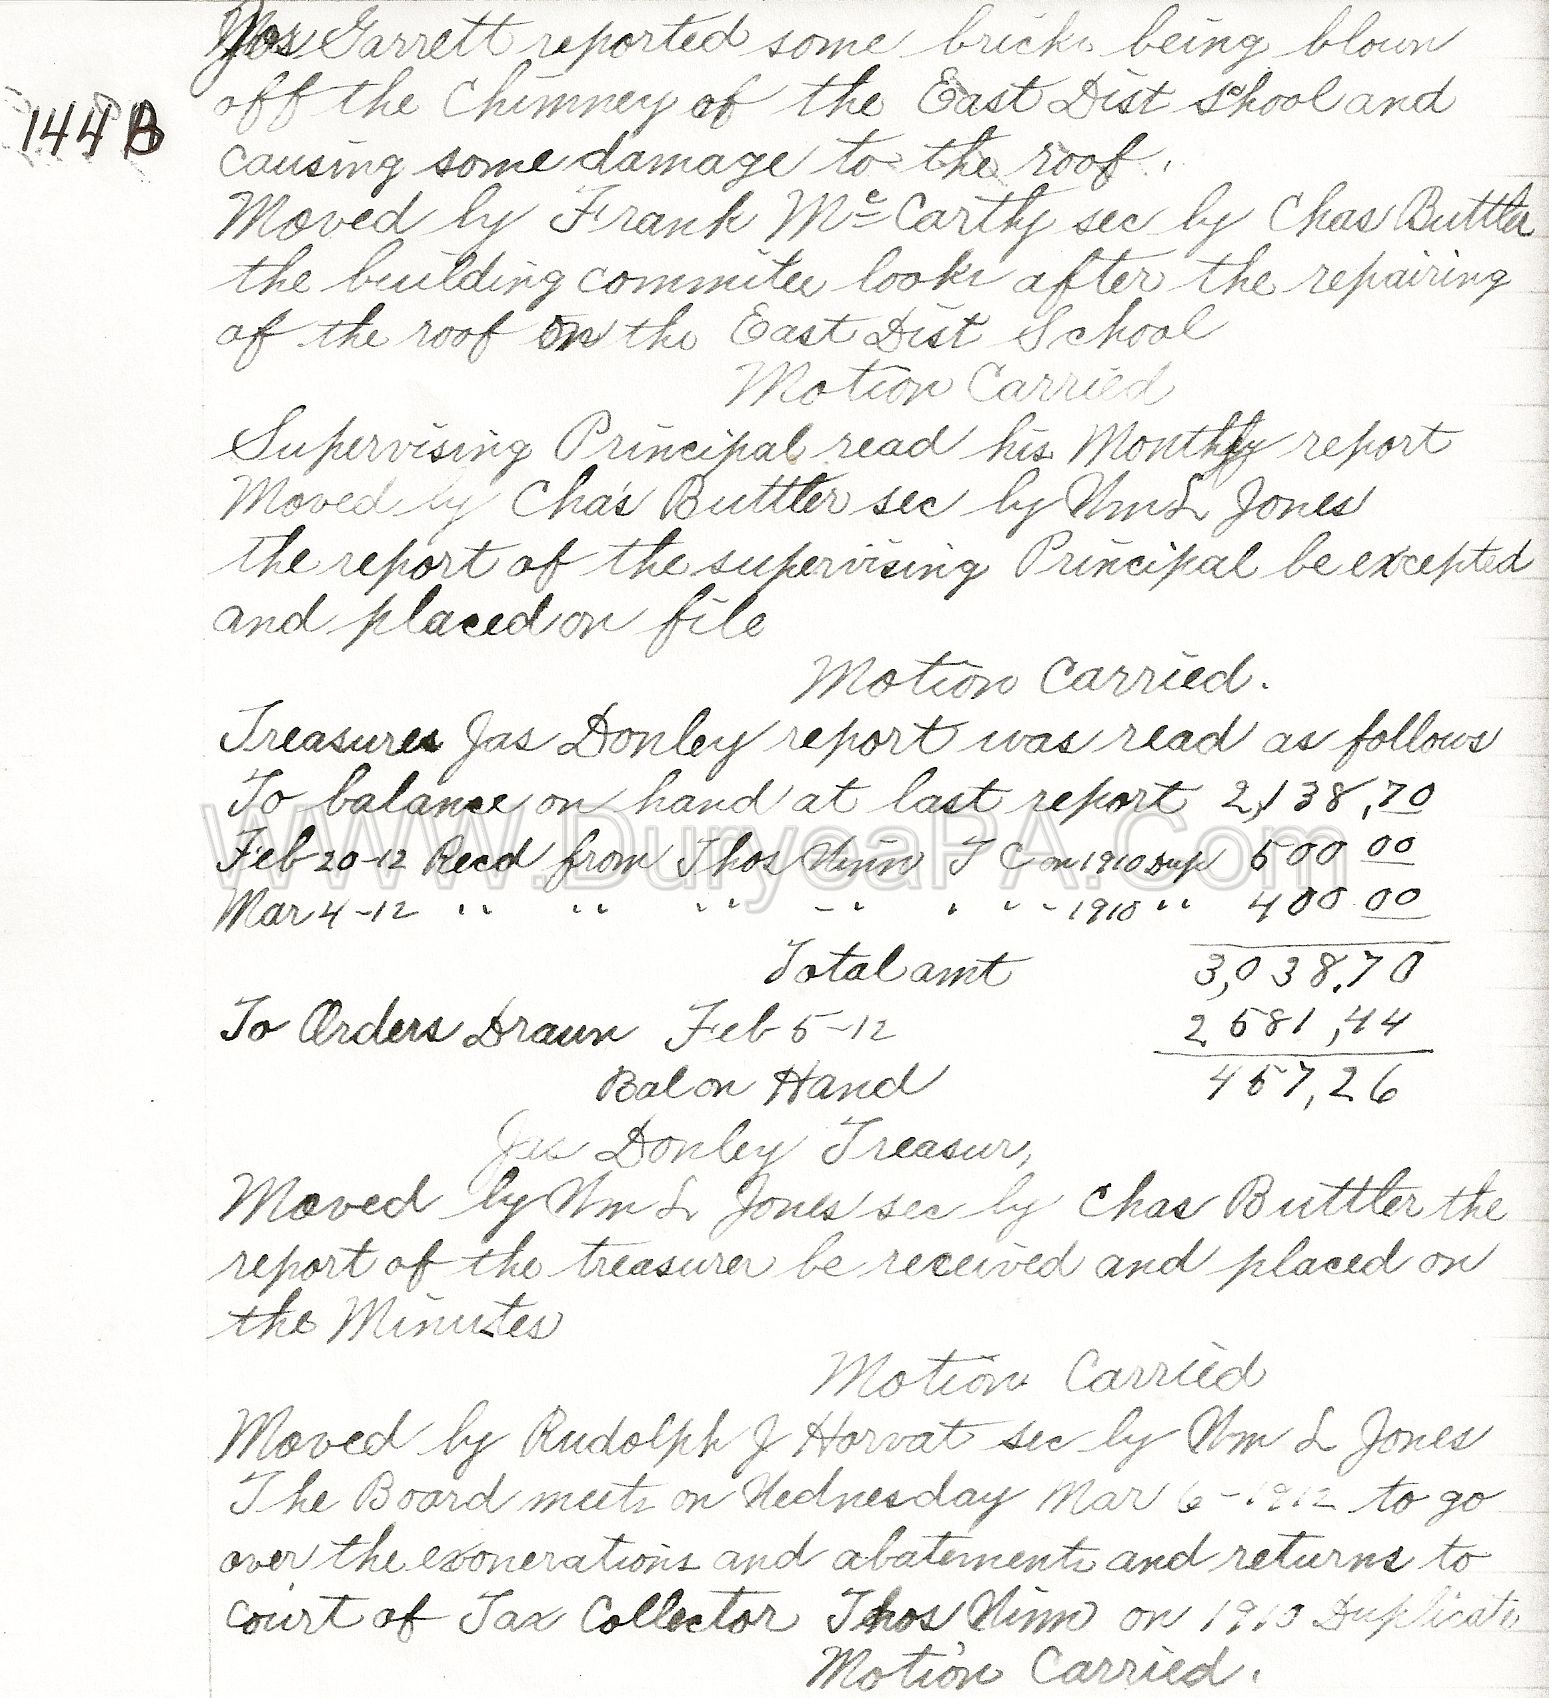 Garrett reported some bricks being blown
off the Chimney of the East Dist school and
144 B
causing some damage to the roof.
Moved by Frank Mc Carthy sec by Chas Buttler
the building commitee looks after the repairing
of the roof on the East Dist School
Motion Carried
Supervising Principal read his Monthly report
Moved by Chas Buttler sec by Wm L Jones
the report of the supervising Principal be excepted
and placed on file
Motion Carried.
Treasures Jas Donley report was read as follows
To balance on hand at last report 2,138,70
www.DuryeaPA.Com
Feb 20-12 Recd from Thos Winn T C on 1910 Dup 500 00
Mar 4-12 " " " " " " - 1910 " 400 00
Total amt 3,038,70
To Orders Drawn Feb 5-12 2581,44
Bal on Hand 457,26
Jas Donley Treasur,
Moved by Wm L Jones sec by Chas Buttler the
report of the treasurer be received and placed on
the Minutes
Motion Carried
Moved by Rudolph J Horvat sec by Wm L Jones
The Board meets on Wednesday Mar 6-1912 to go
over the exonerations and abatements and returns to
court of Tax Collector Thos Winn on 1910 Duplicate
Motion Carried.